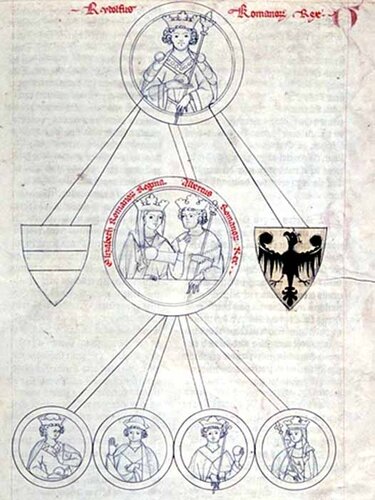 Rvdolfus Romanoru Rex
Elizabeth Romanoru Regina. Albertus Romanoru Rex